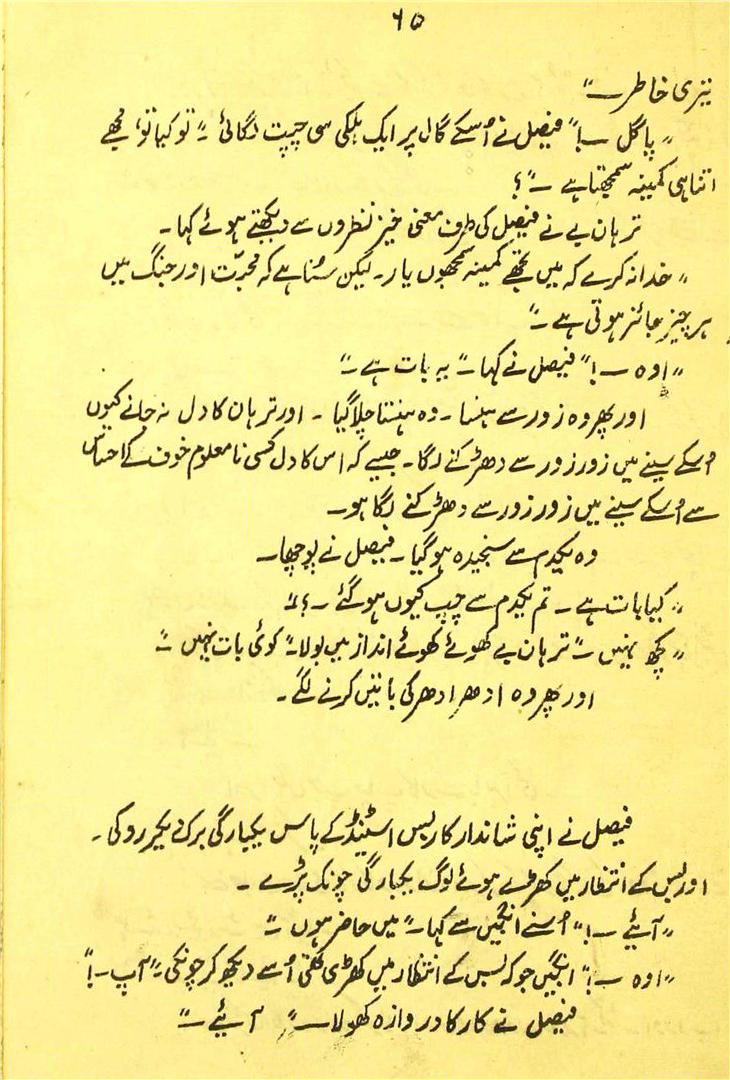 ۶۵
تیری خاطر ــ"
"پاگل ــ!" فیصل نے اُسکے گال پر ایک ہلکی سی چپت لگائی ــ" تو کیا تو، مجھے
اتنا ہی کمینہ سمجھتا ہے ــ"؟
ترہان بے نے فیصل کی طرف معنی خیز نظروں سے دیکھتے ہوئے کہا ــ
"خدا نہ کرے کہ میں تجھے کمینہ سمجھوں یار۔ لیکن سُنا ہے کہ محبّت اور جنگ میں
ہر چیز جائز ہوتی ہے ــ"
"اوہ ــ!" فیصل نے کہا ــ" یہ بات ہے ــ"
اور پھر وہ زور سے ہنسا ۔ وہ ہنستا چلا گیا ۔ اور ترہان کا دل نہ جانے کیوں
اُسکے سینے میں زور زور سے دھڑکنے لگا۔ جیسے کہ اس کا دل کسی نا معلوم خوف کے احساس
سے اُسکے سینے میں زور زور سے دھڑکنے لگا ہو ــ
وہ یکدم سے سنجیدہ ہو گیا ۔ فیصل نے پوچھا ــ
"کیا بات ہے ــ تم یکدم سے چپ کیوں ہو گئے ــ؟"
"کچھ نہیں ــ" ترہان بے کھوئے کھوئے انداز میں بولا ــ" کوئی بات نہیں ــ"
اور پھر وہ ادھر ادھر کی باتیں کرنے لگے ۔
فیصل نے اپنی شاندار کار بس اسٹینڈ کے پاس یکبارگی بریک لیکر روکی ۔
اور بس کے انتظار میں کھڑے ہوئے لوگ یکبارگی چونک پڑے ۔
"آیئے ــ!" اُسنے انجیں سے کہا ــ" میں حاضر ہوں ــ"
"اوہ ــ!" انجیں جو کہ بس کے انتظار میں کھڑی تھی اُسے دیکھ کر چونکی ــ" آپ ــ!"
فیصل نے کار کا دروازہ کھولا ــ" آیئے ــ"